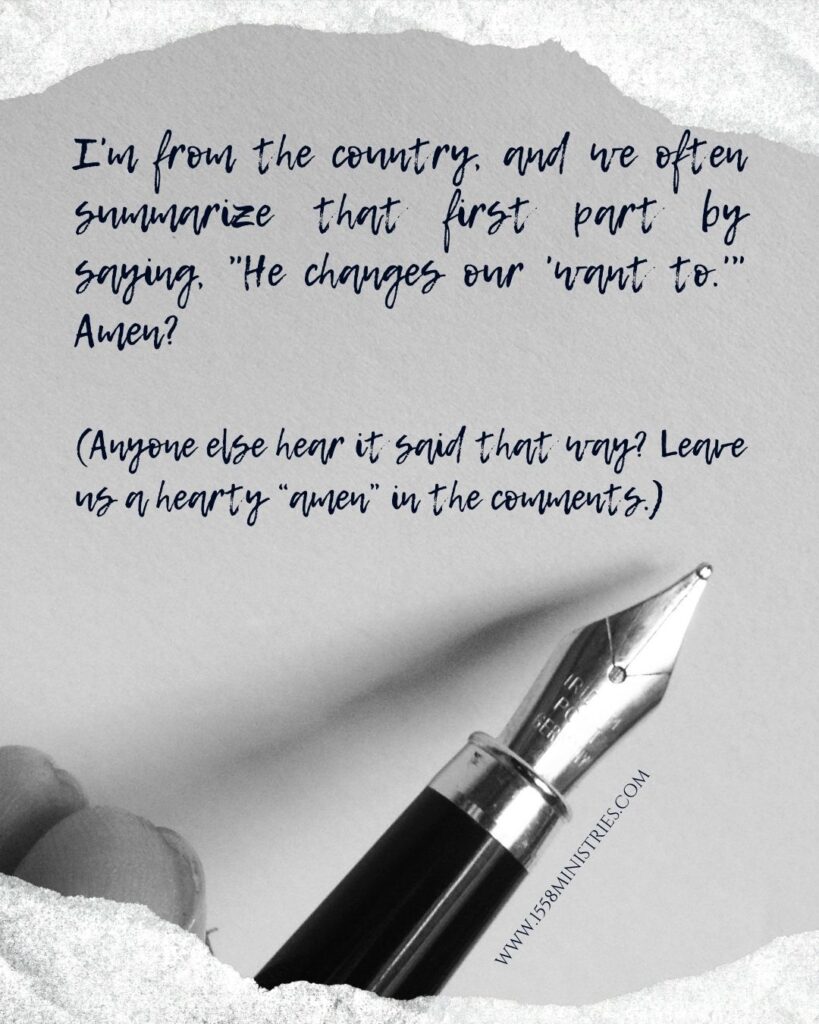 I'm from the country, and we often
summarize that first part by
saying, "He changes our 'want to.'"
Amen?
(Anyone else hear it said that way? Leave
us a hearty “amen” in the comments.)
POINT
WWW.1558MINISTRIES.COM